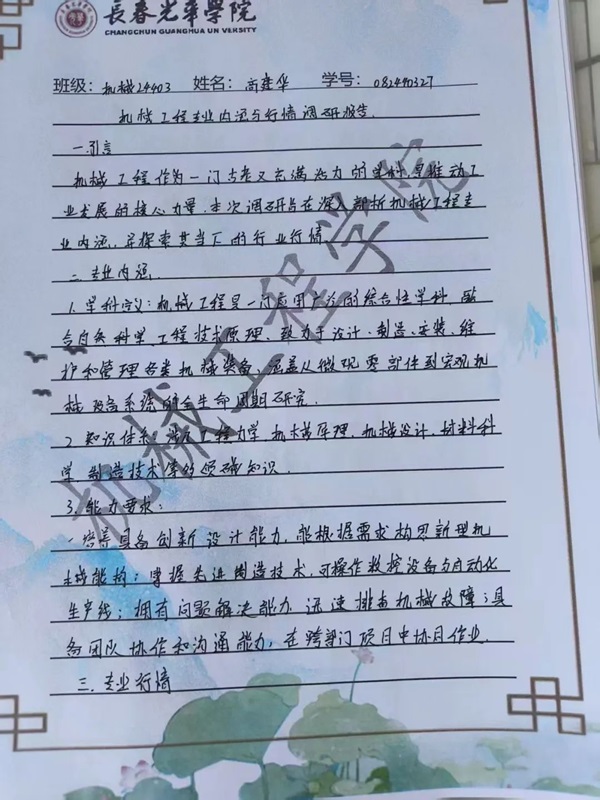 長春光華學院
CHANGCHUN GUANGHUA UNIVERSITY
班级:机械24403 姓名:高建华 学号:082440327
机械工程专业内涵与行情调研报告.
一.引言
机械工程作为一门古老又充满活力的学科,是推动工
业发展的核心力量.本次调研旨在深入剖析机械工程专
业内涵,并探索其当下的行业行情.
二.专业内涵.
1.学科定义:机械工程是一门应用广泛的综合性学科,融
合自然科学、工程技术原理,致力于设计、制造、安装、维
护和管理各类机械装备,涵盖从微观零部件到宏观机
械设备系统的全生命周期研究.
2.知识体系:涉及工程力学、机械原理、机械设计、材料科
学、制造技术等的基础知识.
3.能力要求:
培养具备创新设计能力,能根据需求构思新型机
械结构;掌握先进制造技术,可操作数控设备与自动化
生产线;拥有问题解决能力,迅速排查机械故障;具
备团队协作和沟通能力,在跨部门项目中协同作业.
三.专业行情
机械工程学院